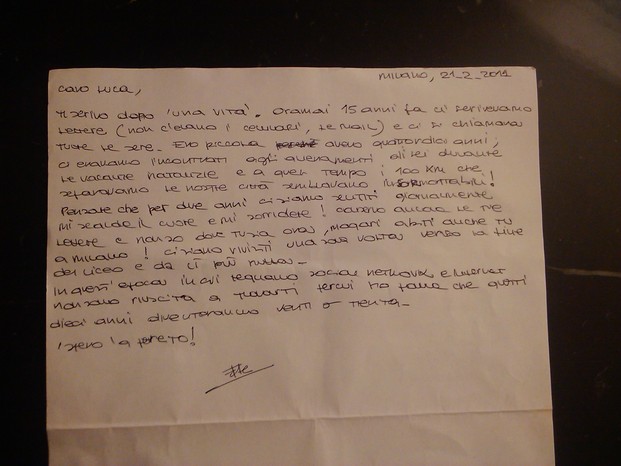 MILANO, 21_2_2011
CARO LUCA,
TI SCRIVO DOPO 'UNA VITA'. ORAMAI 15 ANNI FA CI SCRIVEVAMO
LETTERE (NON C'ERANO I CELLULARI, LE MAIL) E CI SI CHIAMAVA
TUTTE LE SERE. ERO PICCOLA AVEVO QUATTORDICI ANNI,
CI ERAVAMO INCONTRATI AGLI DURANTE
LE VACANZE NATALIZIE E A QUEL TEMPO I 100 KM CHE
SEPARAVANO LE NOSTRE CITTÀ SEMBRAVANO INSORMONTABILI!
PENSARE CHE PER DUE ANNI CI SIAMO SENTITI GIORNALMENTE
MI SCALDA IL CUORE E MI SORRIDERE! ANCORA LE TUE
LETTERE E MAGARI ABITI ANCHE TU
A MILANO! CI SIAMO VISTI UNA VOLTA VERSO LA FINE
DEL LICEO E DA LÌ PIÙ NULLA_
IN QUEST'EPOCA IN CUI REGNANO SOCIAL NETWORK E INTERNET
NON SONO RIUSCITA A TROVARTI CHE QUESTI
DIECI ANNI DIVENTERANNO VENTI O TRENTA_
PRESTO!